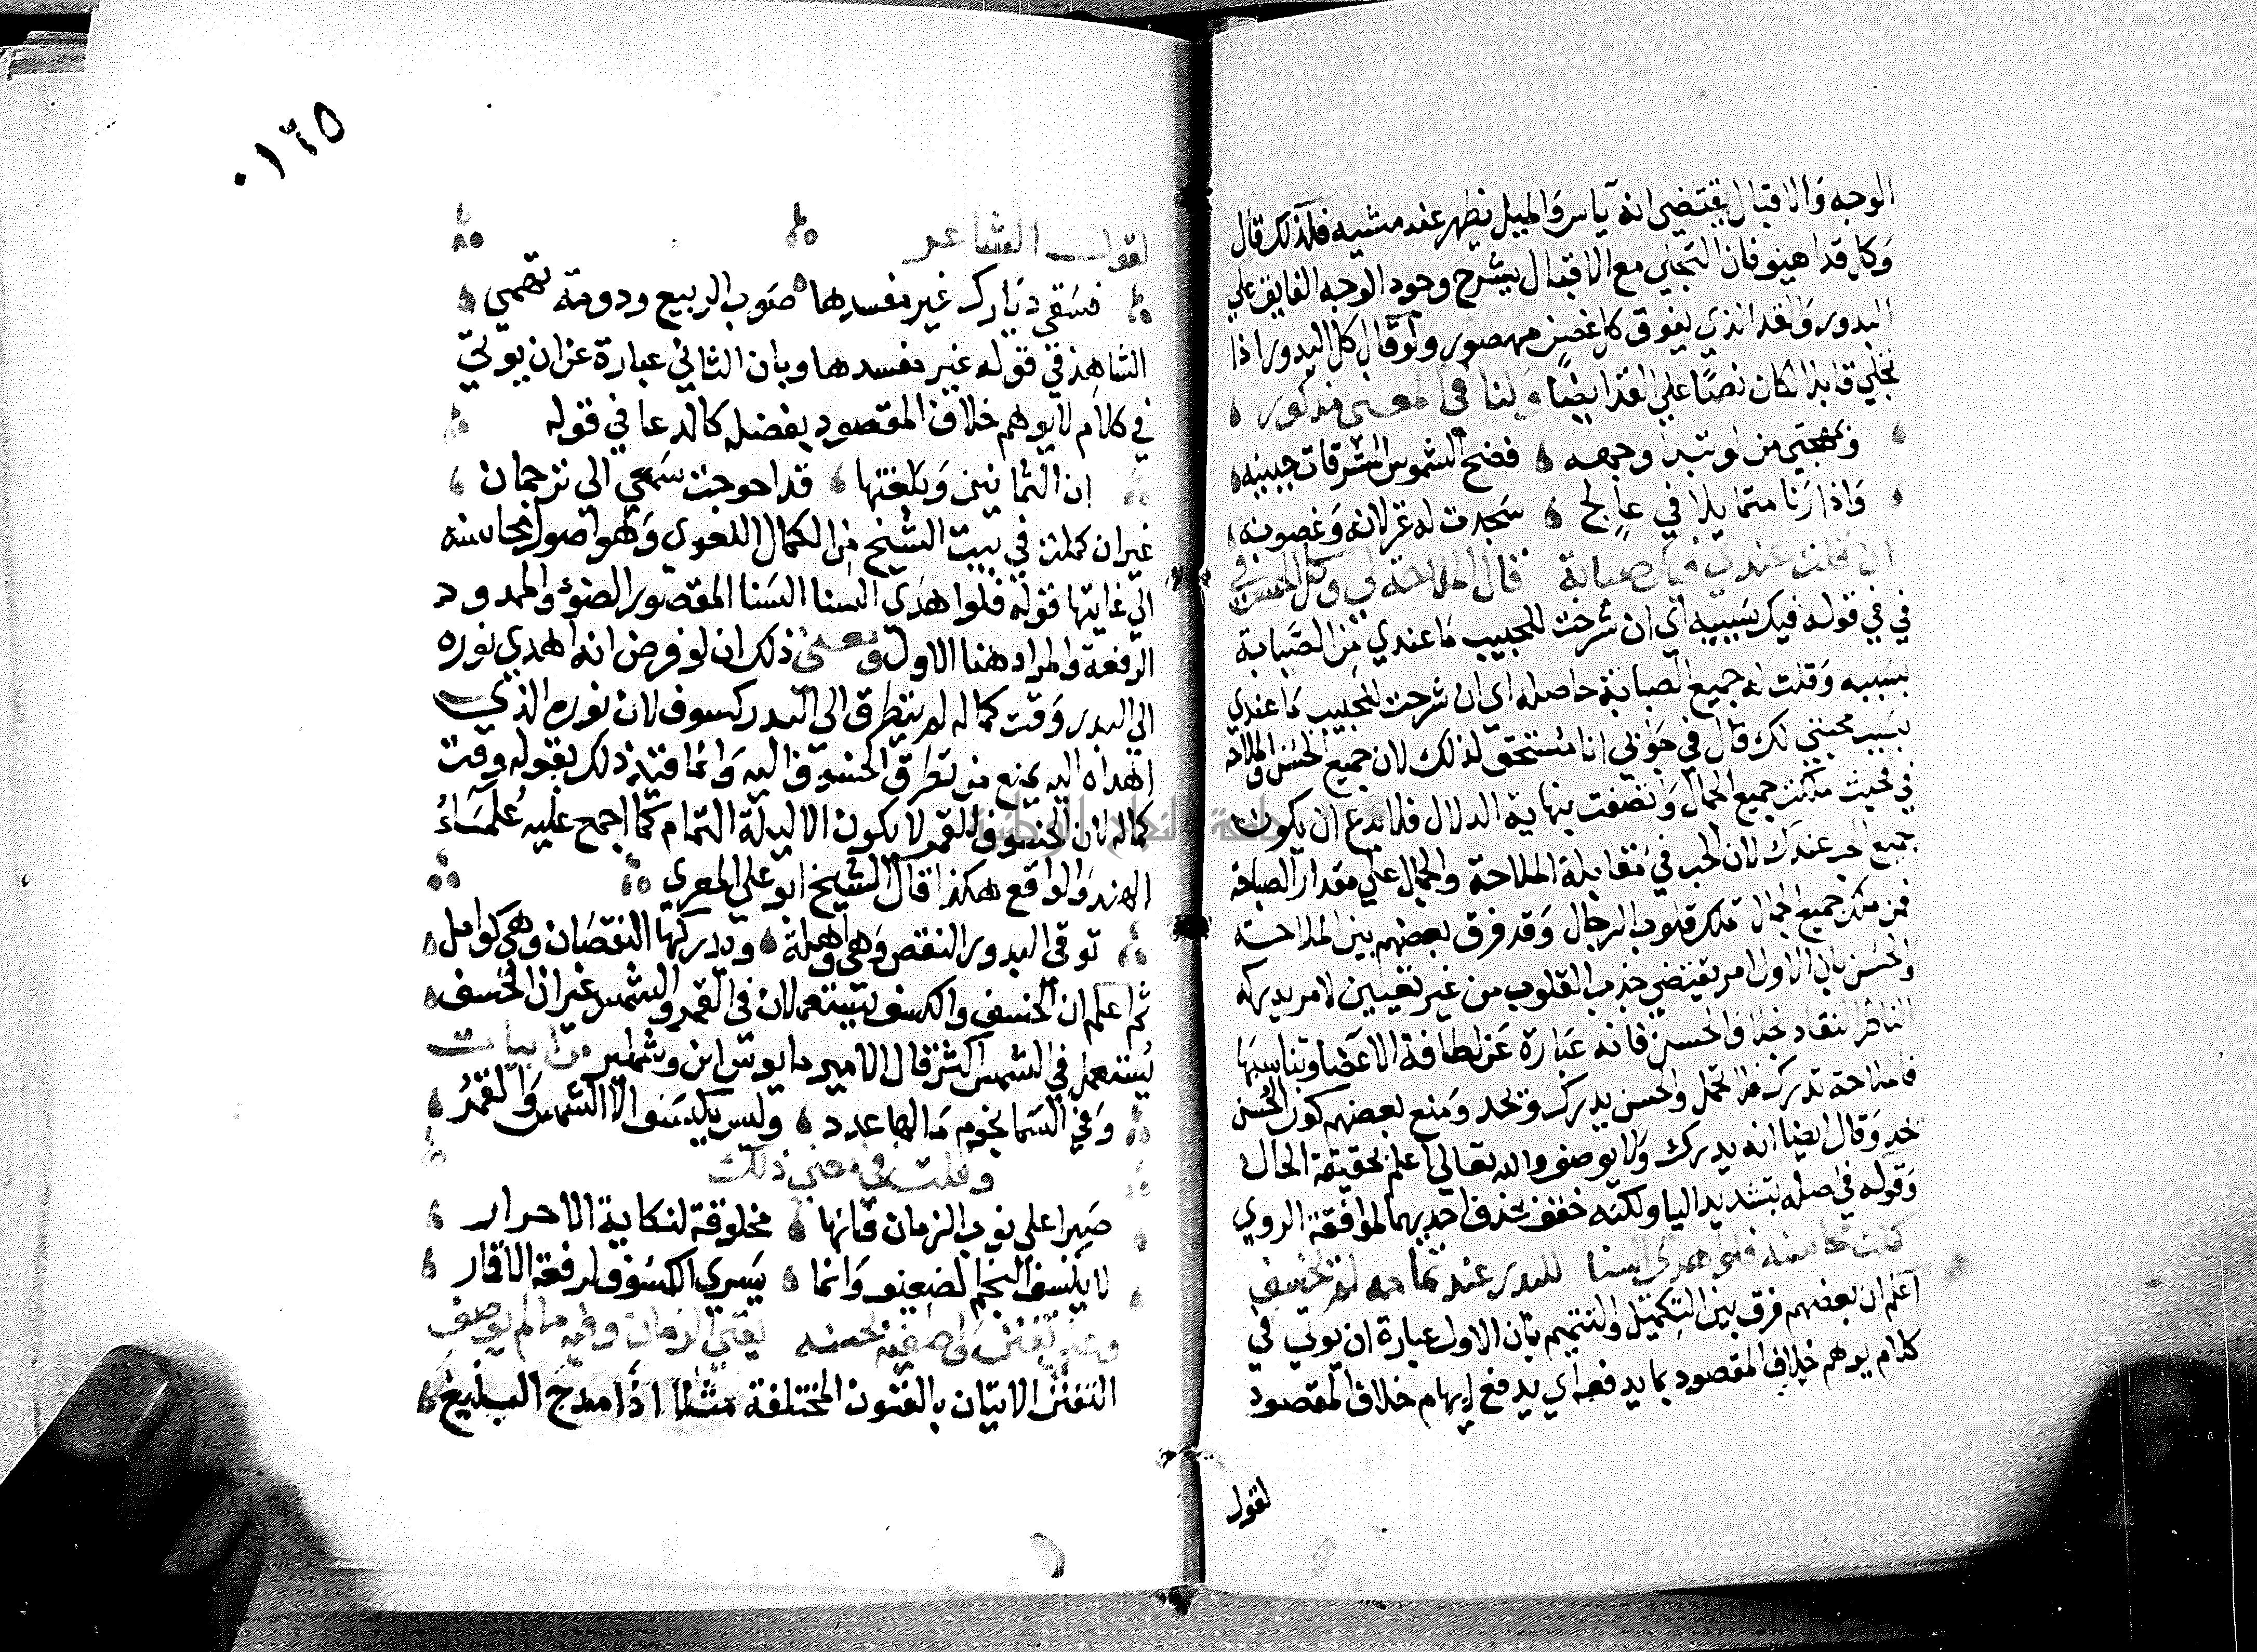 الوجه والاقبال يقتضي انه آياس والميل يظهر عند مشيه فلذلك قال
وكل قد اهيف فان التجلي مع الاقبال يشرح وجود الوجه الفايق علي
البدور والقد الذي يفوق كل غصن مهصور ولو قال كل البدور اذا
تجلي قابلا لكان نصا علي القد ايضا ولنا في المعنى مذكور
وبمهجتي من لو تبدا وجهه فضح الشموس المشرقات جبينه
واذا رنا متمايلا في عالج سجدت له غزلانه وغصونه
ان قلت عندي فيك كل صبابة قال الملاحة لي وكل الحسن في
في في قوله فيك سببيه اي ان شرحت للحبيب ما عندي من الصبابة
بسببه وقلت له جميع الصبابة حاصله اي ان شرحت للحبيب ما عندي
بسبب محبتي لك قال في جوابي انا مستحق لذلك لان جميع الحسن والملاحة
في فحيث ملكت جميع الجمال واتصفت بنهاية الدلال فلا بدع ان يكون
جميع الحب عندك لان الحب في مقابلة الملاحة والجمال علي مقدار الصباحة
فمن ملك جميع الجمال تملك قلوب الرجال وقد فرق بعضهم بين الملاحة
والحسن بان الاول امر يقتضي جذب القلوب من غير تعيين لامر يدركه
الناظر النقاد بخلاف الحسن فانه عبارة عن لطافة الاعضا وتناسبها
فالملاحة تدرك ولا تحد والحسن يدرك ويحد ومنع بعضهم كون الحسن
يحد وقال ايضا انه يدرك ولا يوصف والله تعالي اعلم بحقيقة الحال
وقوله في اصله بتشديد اليا ولكنه خفف بحذف احديهما لموافقة الروي
كملت محاسنه فلو اهدي السنا للبدر عند تمامه لم يخسف
اعلم ان بعضهم فرق بين التكميل والتتميم بان الاول عبارة ان يوتي في
كلام يوهم خلاف المقصود بما يدفعه اي يدفع ايهام خلاف المقصود
لقول
٠١٢٥
لقول الشاعر
فسقي ديارك غير مفسدها صوب الربيع وديمة تهمي
الشاهد في قوله غير مفسدها وبان الثاني عبارة عن ان يوتي
في كلام لا يوهم خلاف المقصود بفضله كالدعا في قوله
ان الثمانين وبلغتها قد احوجت سمعي الي ترجمان
غير ان كملت في بيت الشيخ من الكمال اللغوي وهو اصول محاسنه
الي غايتها قوله فلوا هدي السنا السنا المقصور الضوء والممدود
الرفعة والمراد هنا الاول ومعنى ذلك ان لو فرض انه اهدي نوره
الي البدر وقت كماله لم يتطرق الي البدر كسوف لان نوره الذي
اهداه اليه يمنع من تطرق الخسوف اليه وانما قيد ذلك بقوله وقت
كماله لان الخسوف للقمر لا يكون الا ليلة التمام كما اجمع عليه علماء
الهند والواقع هكذا قال الشيخ ابو علي المعري
توقي البدور النقص وهي اهلة ويدركها النقصان وهي كوامل
ثم اعلم ان الخسف والكسف يستعملان في القمر والشمس غير ان الخسف
يستعمل في الشمس اكثر قال الامير قابوس ابن وشمكير من ابيات
وفي السما نجوم ما لها عدد وليس يكسف الا الشمس والقمر
وقلت في معنى ذلك
صبرا علي نوب الزمان فانها مخلوقة لنكاية الاحرار
لا يكسف النجم الضعيف وانما يسري الكسوف لرفعة الاقمار
وعلي تفنن واصفيه بحسنه يفني الزمان وفيه ما لم يوصف
التفنن الاتيان بالفنون المختلفة مثلا اذا مدح البليغ